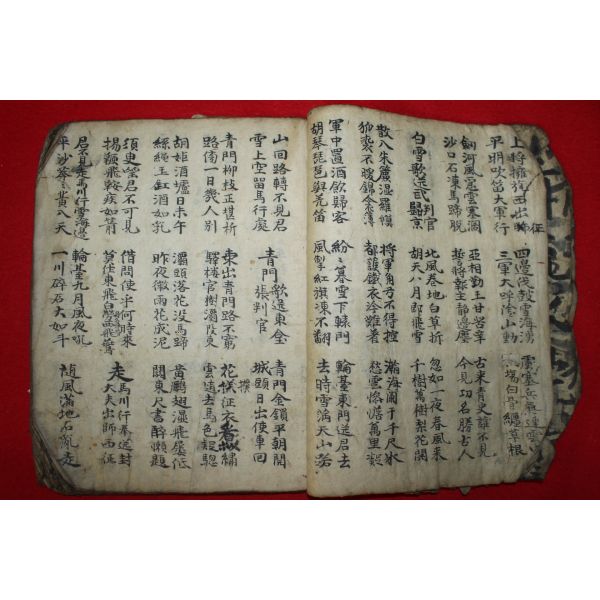 上將擁旄西出征
平明吹笛大軍行
四邊伐鼓雪海湧
三軍大呼陰山動
虜塞兵氣連雲屯
場白骨纏草根
劍河風急雲片闊
沙口石凍馬蹄脫
亞相勤王甘苦辛
誓將報主靜邊塵
古來青史誰不見
今見功名勝古人
白雪歌送武判官歸京
北風卷地白草折
胡天八月即飛雪
忽如一夜春風來
千樹萬樹梨花開
散入朱簾濕羅幕
狐裘不暖錦衾薄
將軍角弓不得控
都護鐵衣冷難著
瀚海闌干千尺冰
愁雲慘憺萬里凝
軍中置酒飲歸客
胡琴琵琶與羌笛
紛紛暮雪下轅門
風掣紅旗凍不翻
輪臺東門送君去
去時雪滿天山路
山回路轉不見君
雪上空留馬行處
青門歌送東臺
張判官
青門金鎖平朝開
城頭日出使車回
青門柳枝正堪折
路傍一日幾人別
東出青門路不窮
驛樓官樹灞陵東
花撲征衣看似繡
雲隨去馬色疑驄
胡姬酒壚日未午
絲繩玉缸酒如乳
灞頭落花沒馬蹄
昨夜微雨花成泥
黃鸝翅濕飛轉低
關東尺書醉懶題
須臾望君不可見
揚鞭飛鞚疾如箭
借問使乎何時來
莫作東飛伯勞西飛燕
走馬川行奉送封
大夫出師西征
君不見走馬川行雪海邊
平沙莽莽黃入天
輪臺九月風夜吼
一川碎石大如斗
隨風滿地石亂走